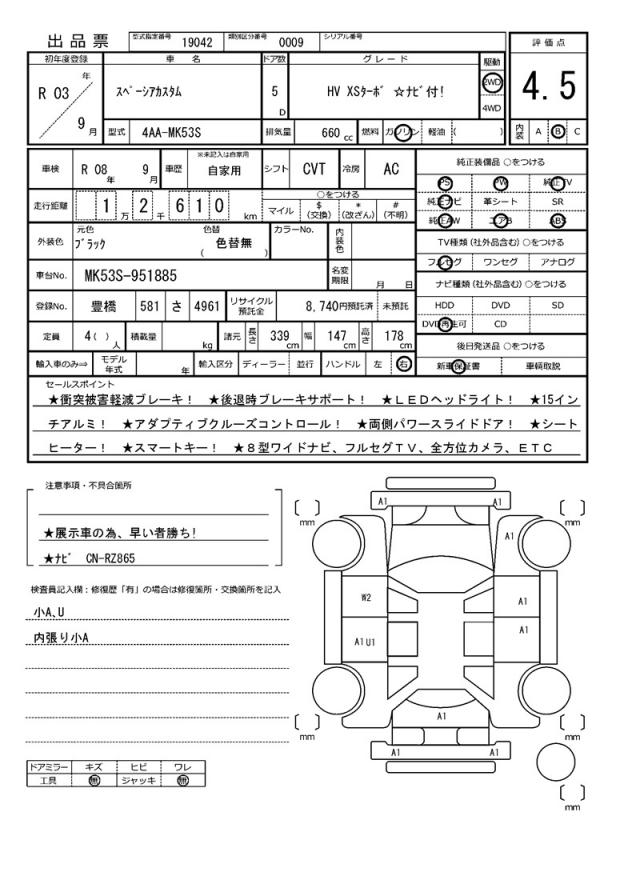 出品票 型式指定番号 19042 類別区分番号 0009 シリアル番号
初年度登録 車名 ドア数 グレード 駆動 評価点
R 03 年 9 月 スペーシアカスタム 5 D HV XSターボ ☆ナビ付! 2WD 4WD 4.5
型式 4AA-MK53S 排気量 660 cc 燃料 ガソリン 軽油 ( ) 内装 A B C
車検 R 08 年 9 月 車歴 ※未記入は自家用 自家用 シフト CVT 冷房 AC 純正装備品 ○をつける
PS PW 純正TV
走行距離 1 万 2 千 6 1 0 km ○をつける マイル $(交換) *(改ざん) #(不明) 純正ナビ 革シート SR
純正AW エアB ABS
外装色 元色 ブラック 色替 ( 色替無 ) カラーNo. 内装色 TV種類 (社外品含む) ○をつける
フルセグ ワンセグ アナログ
車台No. MK53S-951885 名変期限 月 日 ナビ種類 (社外品含む) ○をつける
登録No. 豊橋 581 さ 4961 リサイクル預託金 8,740円預託済 未預託 HDD DVD SD
DVD再生可 CD
定員 4( ) 人 積載量 kg 諸元 長さ 339 cm 幅 147 cm 高さ 178 cm 後日発送品 ○をつける
輸入車のみ⇒ モデル年式 年 輸入区分 ディーラー 並行 ハンドル 左 右 新車保証書 車輌取説
セールスポイント
★衝突被害軽減ブレーキ! ★後退時ブレーキサポート! ★LEDヘッドライト! ★15イン
チアルミ! ★アダプティブクルーズコントロール! ★両側パワースライドドア! ★シート
ヒーター! ★スマートキー! ★8型ワイドナビ、フルセグTV、全方位カメラ、ETC
注意事項・不具合箇所
★展示車の為、早い者勝ち!
★ナビ CN-RZ865
検査員記入欄:修復歴「有」の場合は修復箇所・交換箇所を記入
小A、U
内張り小A
ドアミラー キズ ヒビ ワレ
工具 無 ジャッキ 無
A1 A1
mm mm
A1
W2 A1
A1U1 A1
A1
mm mm
A1 A1
mm